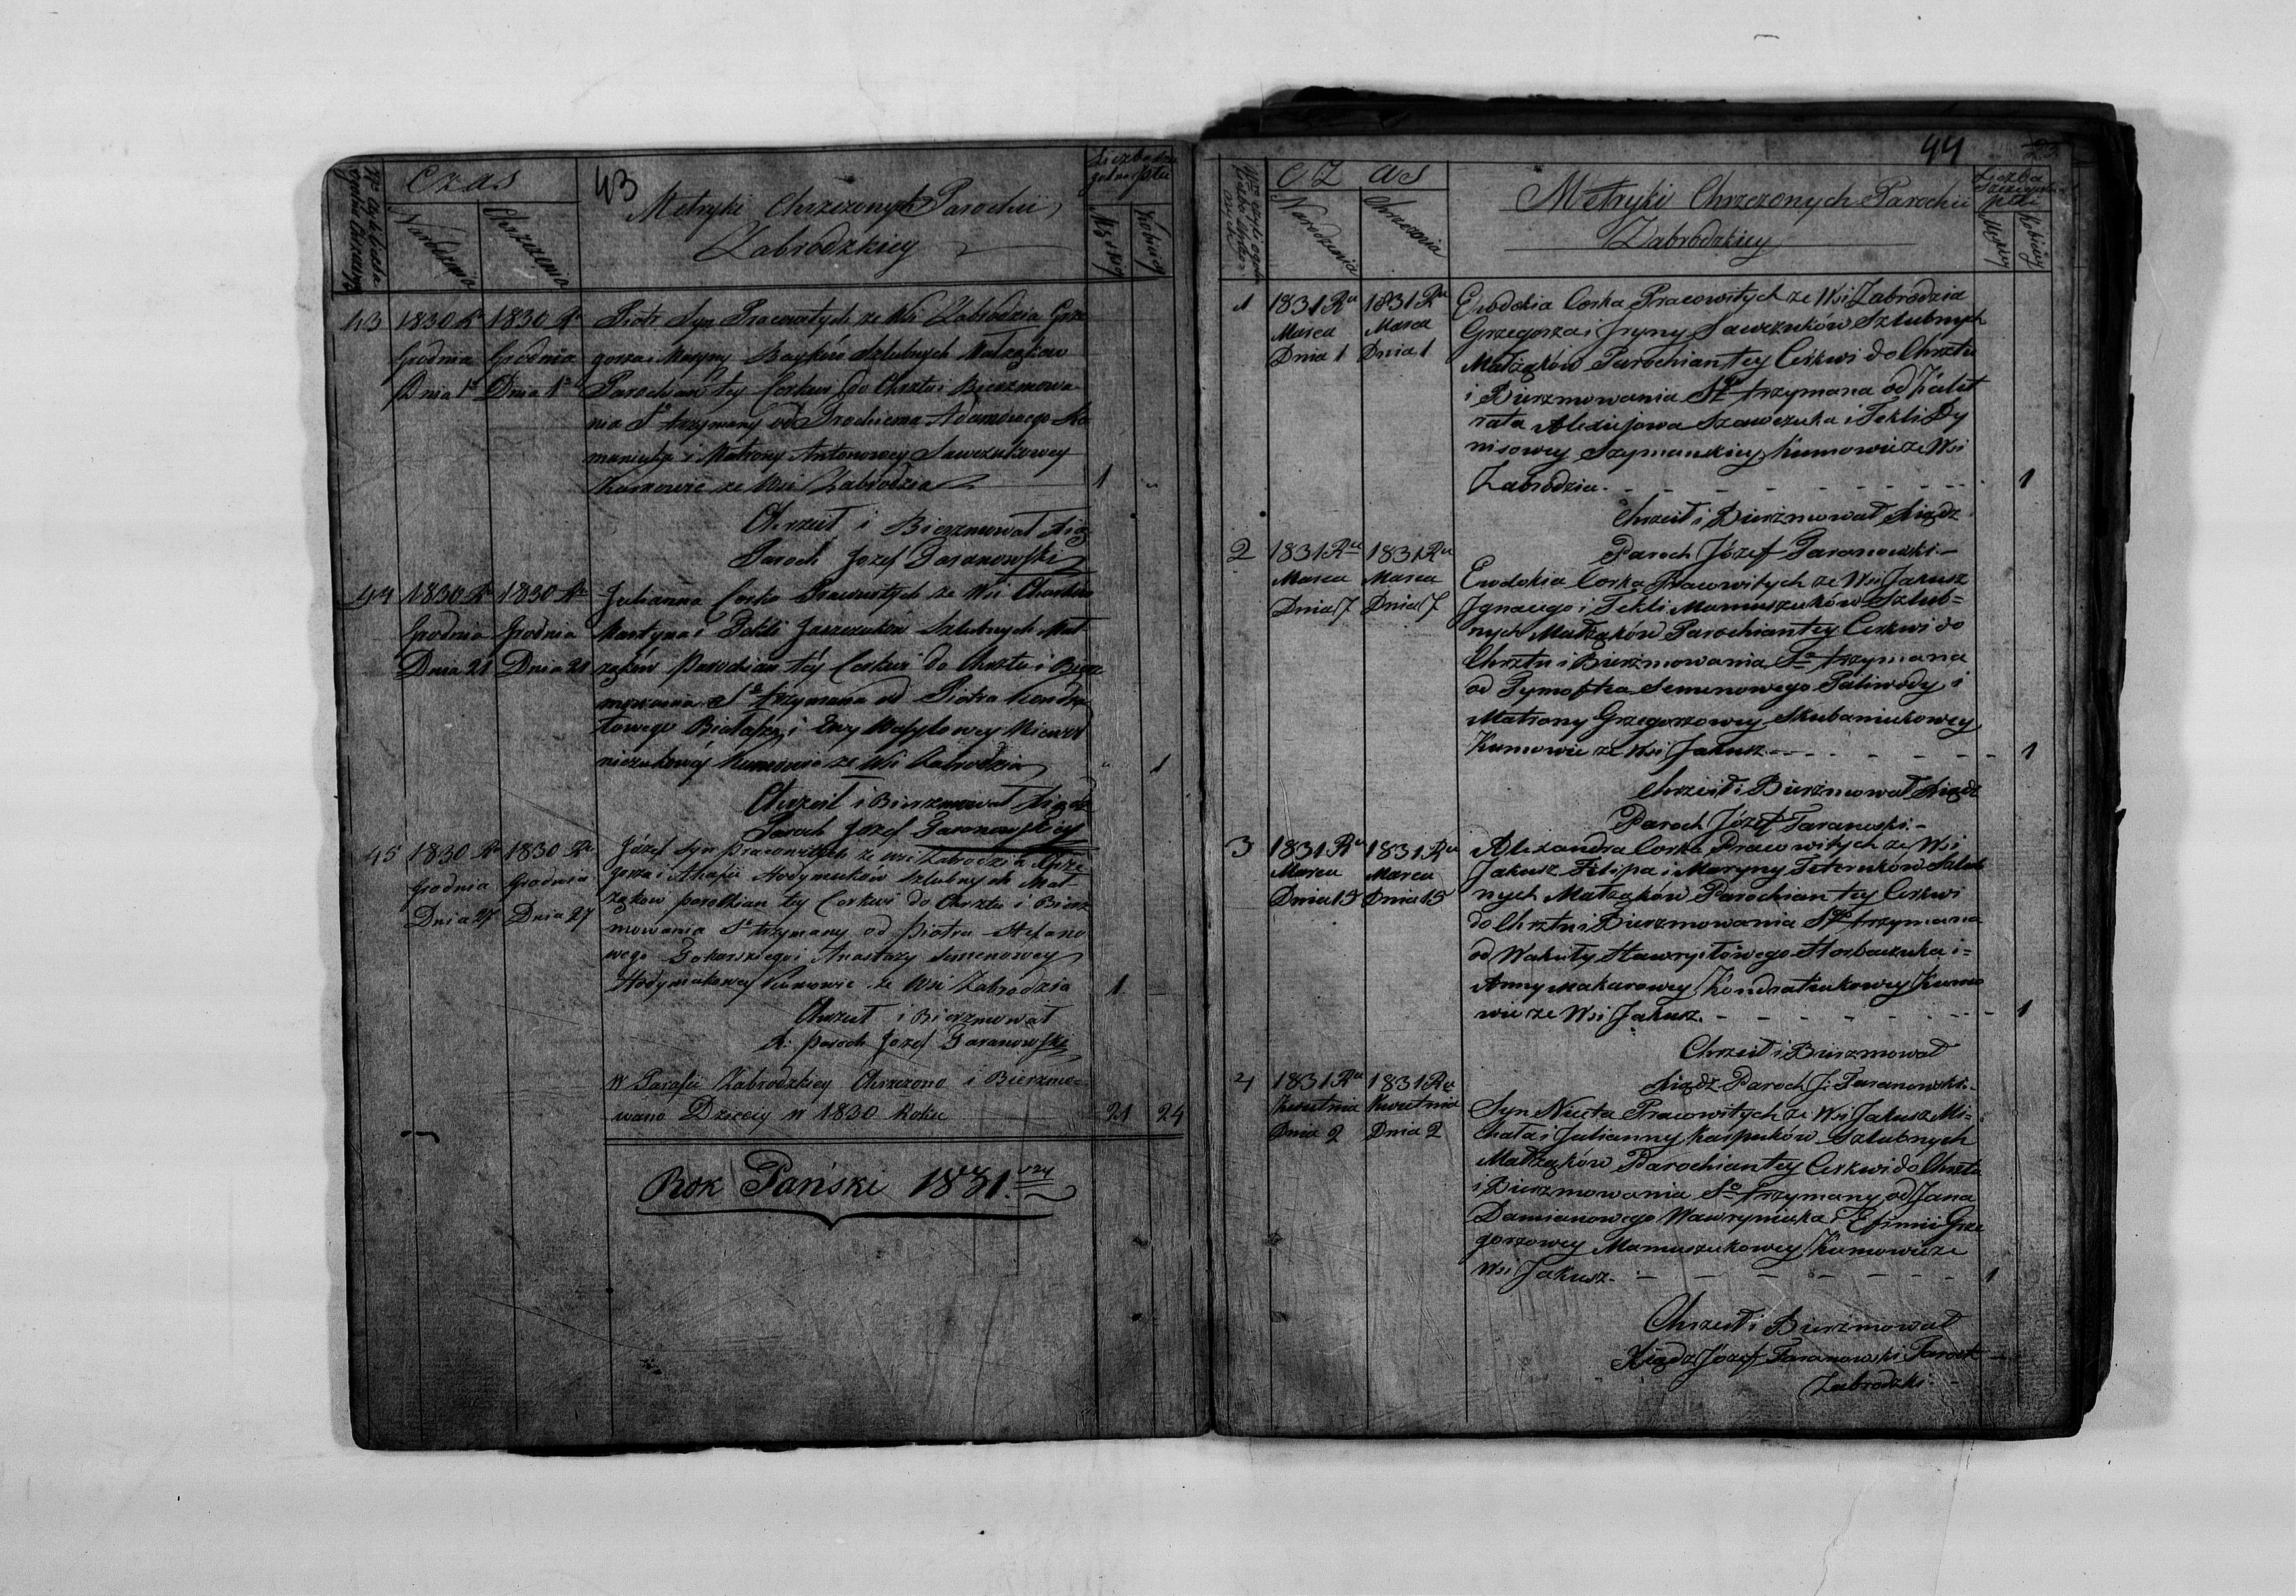 43
Czas
Metryki Chrzczonych Parochii
Zabrodzkiey
Narodzenia
Chrzczenia
43
1830 Ru
Grudnia
Dnia 1o
1830 Ru
Grudnia
Dnia 1o
Piotr Syn Pracowitych ze Wsi Zabrodzia Grze
gorza i Maryny Boyków Szlubnych Małżąków
Parochian tey Cerkwi do Chrztu i Bierzmowa
nia So trzymany od Trochiema Adamowego Ro
maniuka i Matrony Antonowey Sawczukowey
Kumowie ze Wsi Zabrodzia
1
Chrzcił i Bierzmował Xiąż
Paroch Jozef Taranowski
44
1830 Ru
Grudnia
Dnia 21
1830 Ru
Grudnia
Dnia 21
Julianna Corka Pracowitych ze Wsi
Martyna i Tekli Jaszczuków Szlubnych Mał
żąków Parochian téy Cerkwi do Chrztu i Bierz
mowania So trzymana od Piotra Kondra
towego i Ewy Wasylowey
Kumowie ze Wsi Zabrodzia
1
Chrzcił i Bierzmował Xiądz
Paroch Jozef Taranowski
45
1830 Ru
Grudnia
Dnia 27
1830 Ru
Grudnia
Dnia 27
Józef Syn Pracowitych ze wsi Zabrodzia Grze
gorza i Ahafii Hodymczuków Szlubnych Mał
żąków parochian tey Cerkwi do Chrztu i Bierz
mowania So trzymany od Piotra Stefano
wego i Anastazy Semenowey
Kumowie ze Wsi Zabrodzia
1
Chrzcił i Bierzmował
X: Paroch Jozef Taranowski
W Parafii Zabrodzkiey Chrzczono i Bierzmo-
wano Dzieciy w 1830 Roku
21
24
Rok Pański 1831.wszy
44
CZAS
Metryki Chrzczonych Parochii
Zabrodzkiey
Narodzenia
Chrzczenia
Liczba
płci
Męzkiey
Kobiecey
1
1831 Ru
Marca
Dnia 1
1831 Ru
Marca
Dnia 1
Ewdokia Corka Pracowitych ze Wsi Zabrodzia
Grzegorza i Jryny Sawczuków Szlubnych
Małżąków Parochian tey Cerkwi do Chrztu
i Bierzmowania Sgo trzymana od Kalist
rata Alexiejowa Szawczuka i Tekli Dy
nisowey Szymanskiey Kumowie ze Wsi
Zabrodzia.
1
Chrzcił i Bierzmował Xiądz
Paroch Józef Taranowski.
2
1831 Ru
Marca
Dnia 7
1831 Ru
Marca
Dnia 7
Ewdokia Corka Pracowitych ze Wsi Jakusz
Jgnacego i Tekli Mamuszuków Szlub=
nych Małżąków Parochian tey Cerkwi do
Chrztu i Bierzmowania So trzymana
od Tymofteia Semenowego Paliwody i
Matrony Grzegorzowey Skubaniukowey
Kumowie ze Wsi Jakusz.
1
Chrzcił i Bierzmował Xiądz
Paroch Józef Taranoski.
3
1831 Ru
Marca
Dnia 15
1831 Ru
Marca
Dnia 15
Alexandra Corka Pracowitych ze Wsi
Jakusz Filipa i Maryny Feteruków Szlub
nych Małżąków Parochian tey Cerkwi
do Chrztu i Bierzmowania Sgo trzymana
od Wakuły Hawryłowego Horbaczuka i=
Anny Makarowey Kondratiukowey Kumo
wie ze Wsi Jakusz.
1
Chrzcił i Bierzmował
Xiądz Paroch J: Taranowski.
4
1831 Ru
Kwietnia
Dnia 2
1831 Ru
Kwietnia
Dnia 2
Syn Niceta Pracowitych ze Wsi Jakusz Mi=
chała i Julianny Karpuków Szlubnych
Małżąków Parochian tey Cerkwi do Chrztu
i Bierzmowania So trzymany od Jana
Damianowego Wawryniuka i Efimii Grze
gorzowey Mamuszukowey Kumowie ze
Wsi Jakusz.
1
Chrzcił i Bierzmował
Xiądz Józef Taranowski Paroch
Zabrodzki